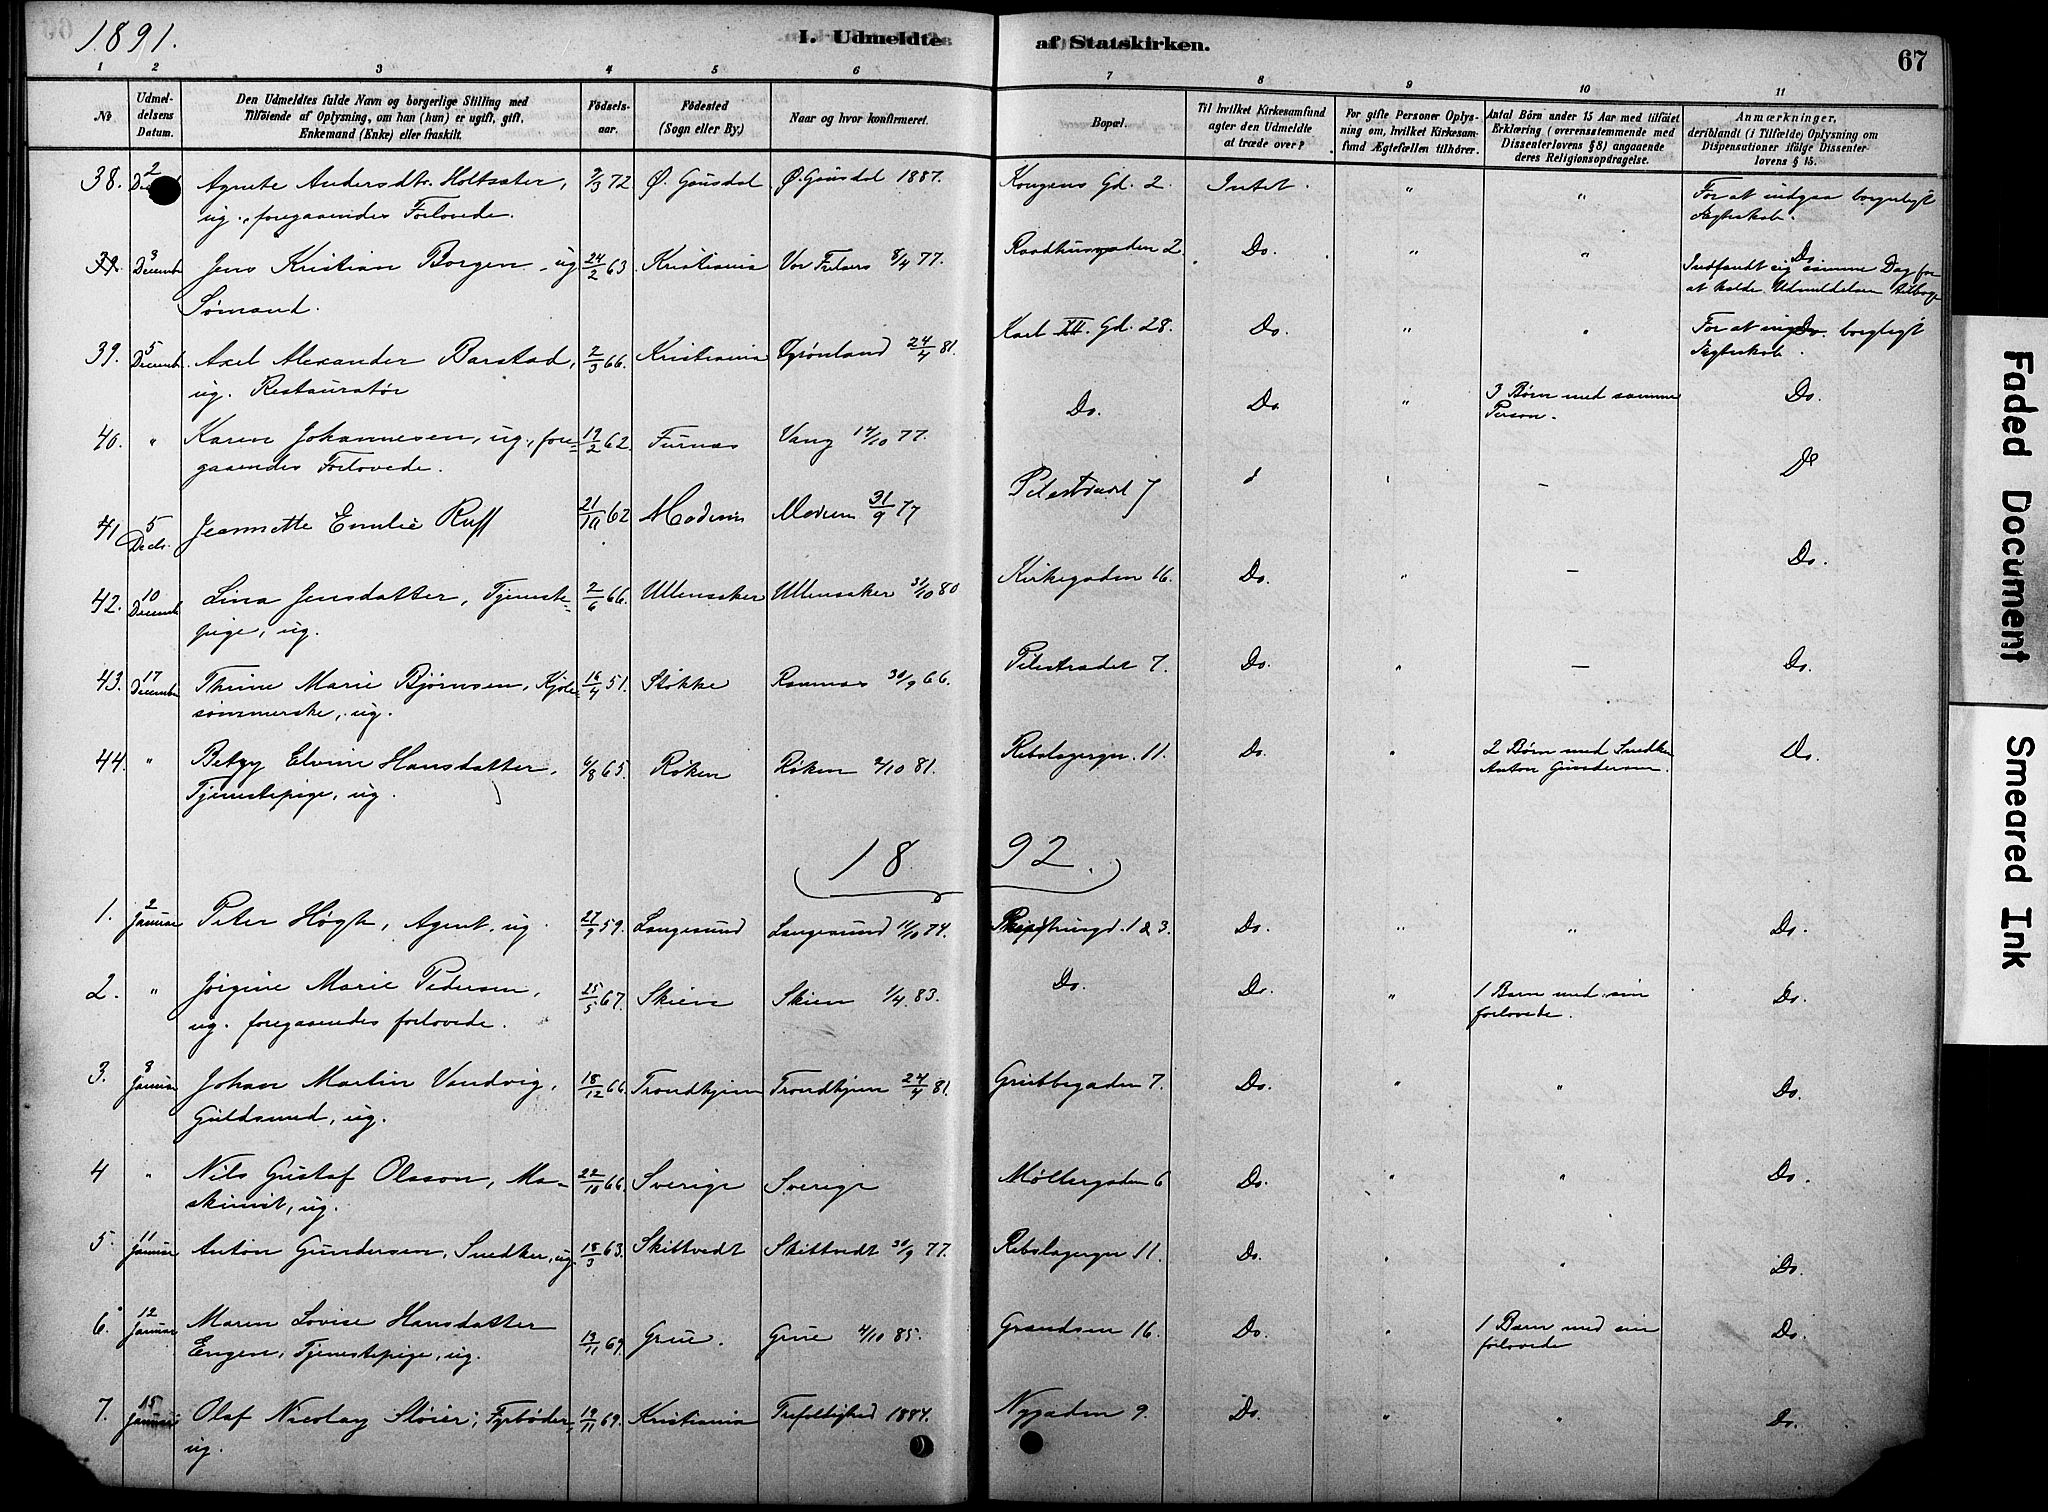 1891.
I. Udmeldte af Statskirken.
67
1 2 3 4 5 6 7 8 9 10 11
No
Udmeldelsens Datum.
Den Udmeldtes fulde Navn og borgerlige Stilling med
Tilföiende af Oplysning, om han (hun) er ugift, gift,
Enkemand (Enke) eller fraskilt.
Födselsaar.
Födested
(Sogn eller By.)
Naar og hvor konfirmeret.
Bopæl.
Til hvilket Kirkesamfund
agter den Udmeldte
at træde over?
For gifte Personer Oplys-
ning om, hvilket Kirkesam-
fund Ægtefællen tilhörer.
Antal Börn under 15 Aar med tilföiet
Erklæring (overensstemmende med
Dissenterlovens § 8) angaaende
deres Religionsopdragelse.
Anmærkninger,
deriblandt (i Tilfælde) Oplysning om
Dispensationer ifölge Dissenter-
lovens § 15.
38. 2 Agnete Andersdtr. Holtsæter, 2/3 72 Ø. Gausdal Ø. Gausdal 1887. Kongens Gd. 2. Intet. " " For at indgaa borgerligt
ug., foregaaendes Forlovede. Ægteskab.
39. 3 Decembr Jens Kristian Borgen, ug 24/2 63 Kristiania Vor Frelsers 8/4 77. Raadhusgaden 2. Do. " " Do.
Sømand. Indfandt sig samme Dag for
at kalde Udmeldelsen tilbage
39. 5 Decemb. Axel Alexander Barstad, 2/3 66. Kristiania Grønland 24/4 81. Karl XII. Gd. 28. Do. " " For at indgaa borgligt
ug. Restauratør Ægteskab.
40. " Karen Johannesen, ug., fore- 19/2 62. Furnæs Vang 14/10 77. Do. Do. " 3 Børn med samme Do.
gaaendes Forlovede. Person.
41 5 Decb. Jeannette Emilie Ruff 21/10 62 Modum Modum 31/9 77 Pilestrædet 7 - Do
42. 10 Decemb Lina Jensdatter, Tjeneste- 2/6 66. Ullensaker Ullensaker 31/10 80 Kirkegaden 16. Do. " - Do.
pige, ug.
43. 17 December Thrine Marie Bjørnsen, Kjole- 16/4 51. Stokke Ramnæs 30/9 66. Pilestrædet 7. Do. " - Do.
sømmerske, ug.
44. " Betzy Elvine Hansdatter, 6/8 65. Røken Røken 2/10 81. Rebslagergn. 11. Do. " 2 Børn med Snedker Do.
Tjenestepige, ug. Anton Gundersen.
1892.
1. 2 Januar Peter Høgh, Agent, ug. 27/9 59. Langesund Langesund 11/10 74. 1 & 3. Do. " " Do.
2. " Jørgine Marie Pedersen, 25/5 67. Skien Skien 1/4. 83. Do. Do. " 1 Barn med sin Do.
ug. foregaaendes forlovede. forlovede.
3. 8 Januar Johan Martin Vandvig, 18/12 66. Trondhjem Trondhjem 24/4 81. Grubbegaden 7. Do. " " Do.
Guldsmed, ug.
4 " Nils Gustaf Olsson, Ma- 22/10 66. Sverige Sverige Møllergaden 6 Do. " " Do.
skinist, ug.
5. 11 Januar Anton Gundersen, Snedker, ug. 18/3 63. Skiptvedt Skiptvedt 30/9 77. Rebslagergn 11. Do. " " Do.
6. 12 Januar Maren Lovise Hansdatter 13/11 69. Grue. Grue 4/10 85. Grændsen 16. Do. " 1 Barn med sin Do.
Engen, Tjenestepige, ug. forlovede
7. 15 Januar Olaf Nicolay Støier, Fyrbøder, 19/11 69. Kristiania Trefoldighed 1884. Nygaden 9. Do. " " Do.
ug.
Faded Document
Smeared Ink